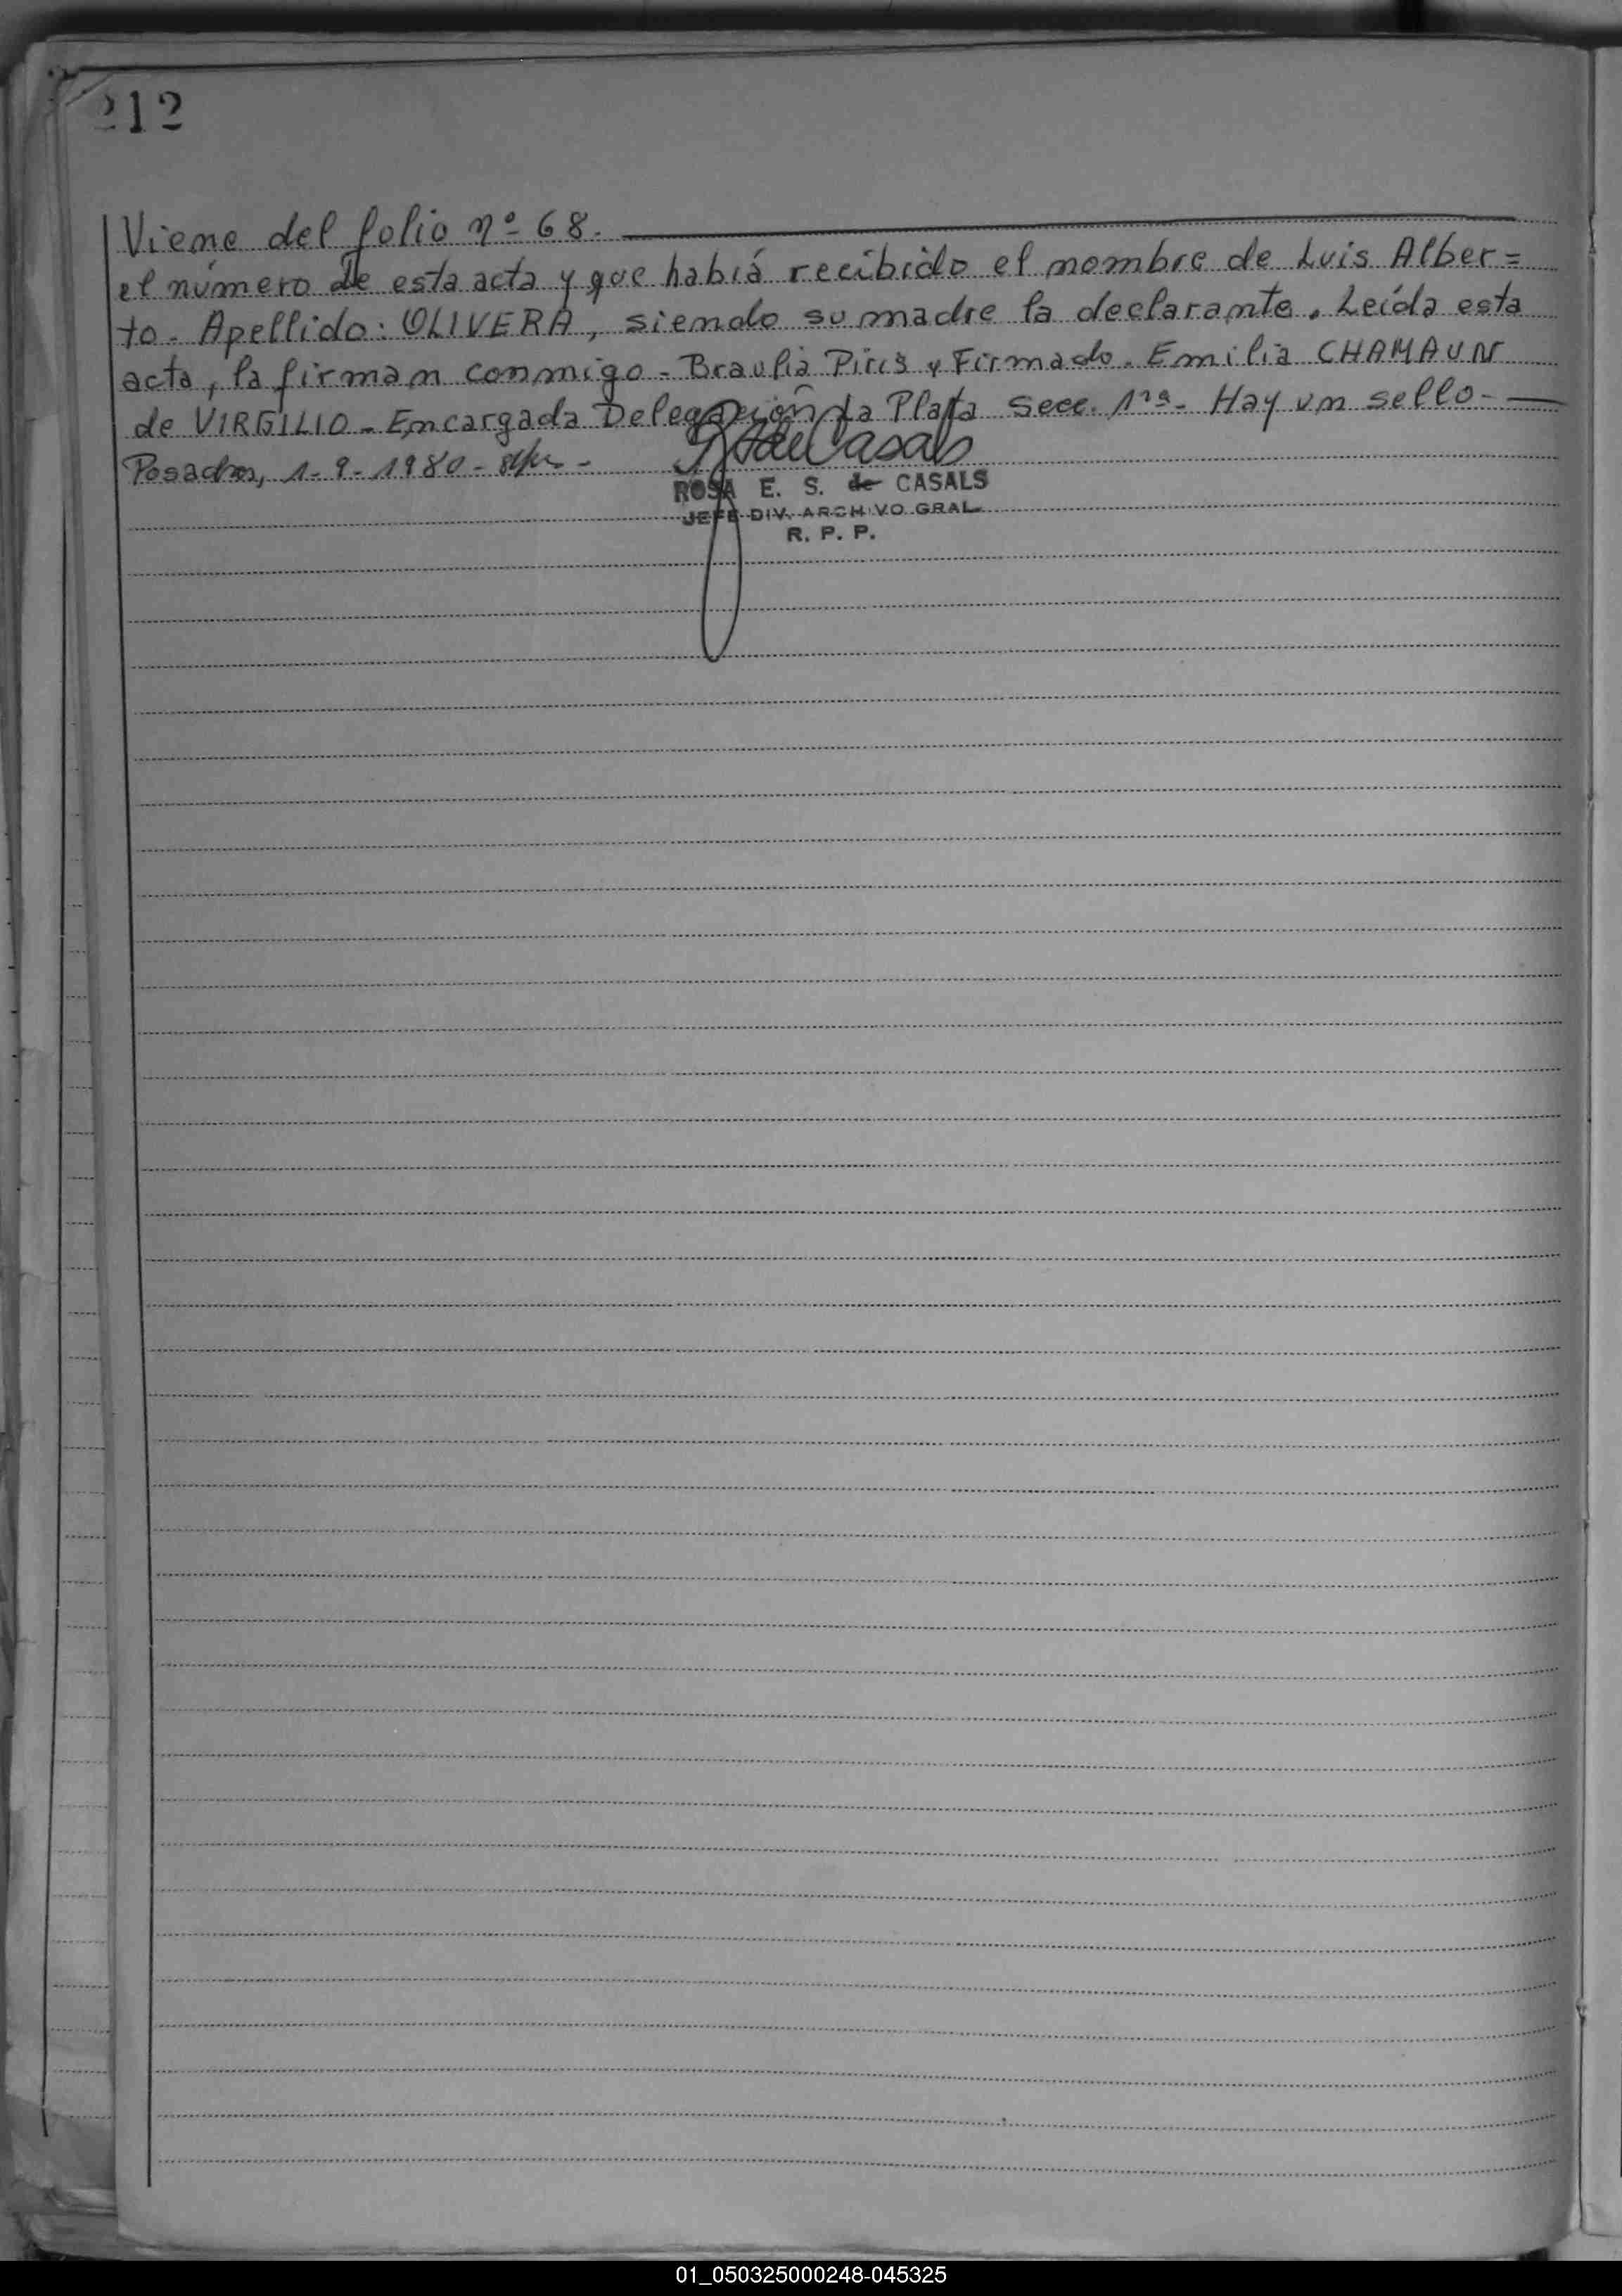 212
Viene del folio nº 68.
el número de esta acta y que habiá recibido el nombre de Luis Alber=
to. Apellido: OLIVERA, siendo su madre la declarante. Leída esta
acta, la firman conmigo - Braulia Piris y Firmado. Emilia CHAMAUN
de VIRGILIO - Encargada Delegación La Plata Secc. 1ra - Hay un sello -
Posadas, 1-9-1980 -
R de Casals
ROSA E. S. de CASALS
JEFE DIV. ARCHIVO GRAL.
R. P. P.
01_050325000248-045325